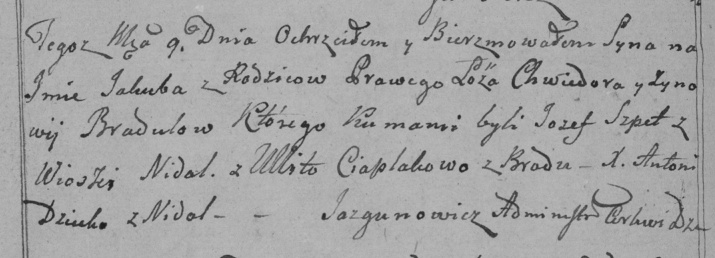 Tegoz Mca 9. Dnia Ochrzciłem y Bierzmowałem Syna na
Jmie Jakuba z Rodzicow Prawego Łoża Chwiedora y Zyno
wij Bradulow Którego Kumami byli Jozef Szpet z
Wioski Nidal. z Ulito Ciaplakowo z Bradu - X. Antoni
Dziuko z Nidal - - Jazgunowicz Administr Cerkwi Dzie